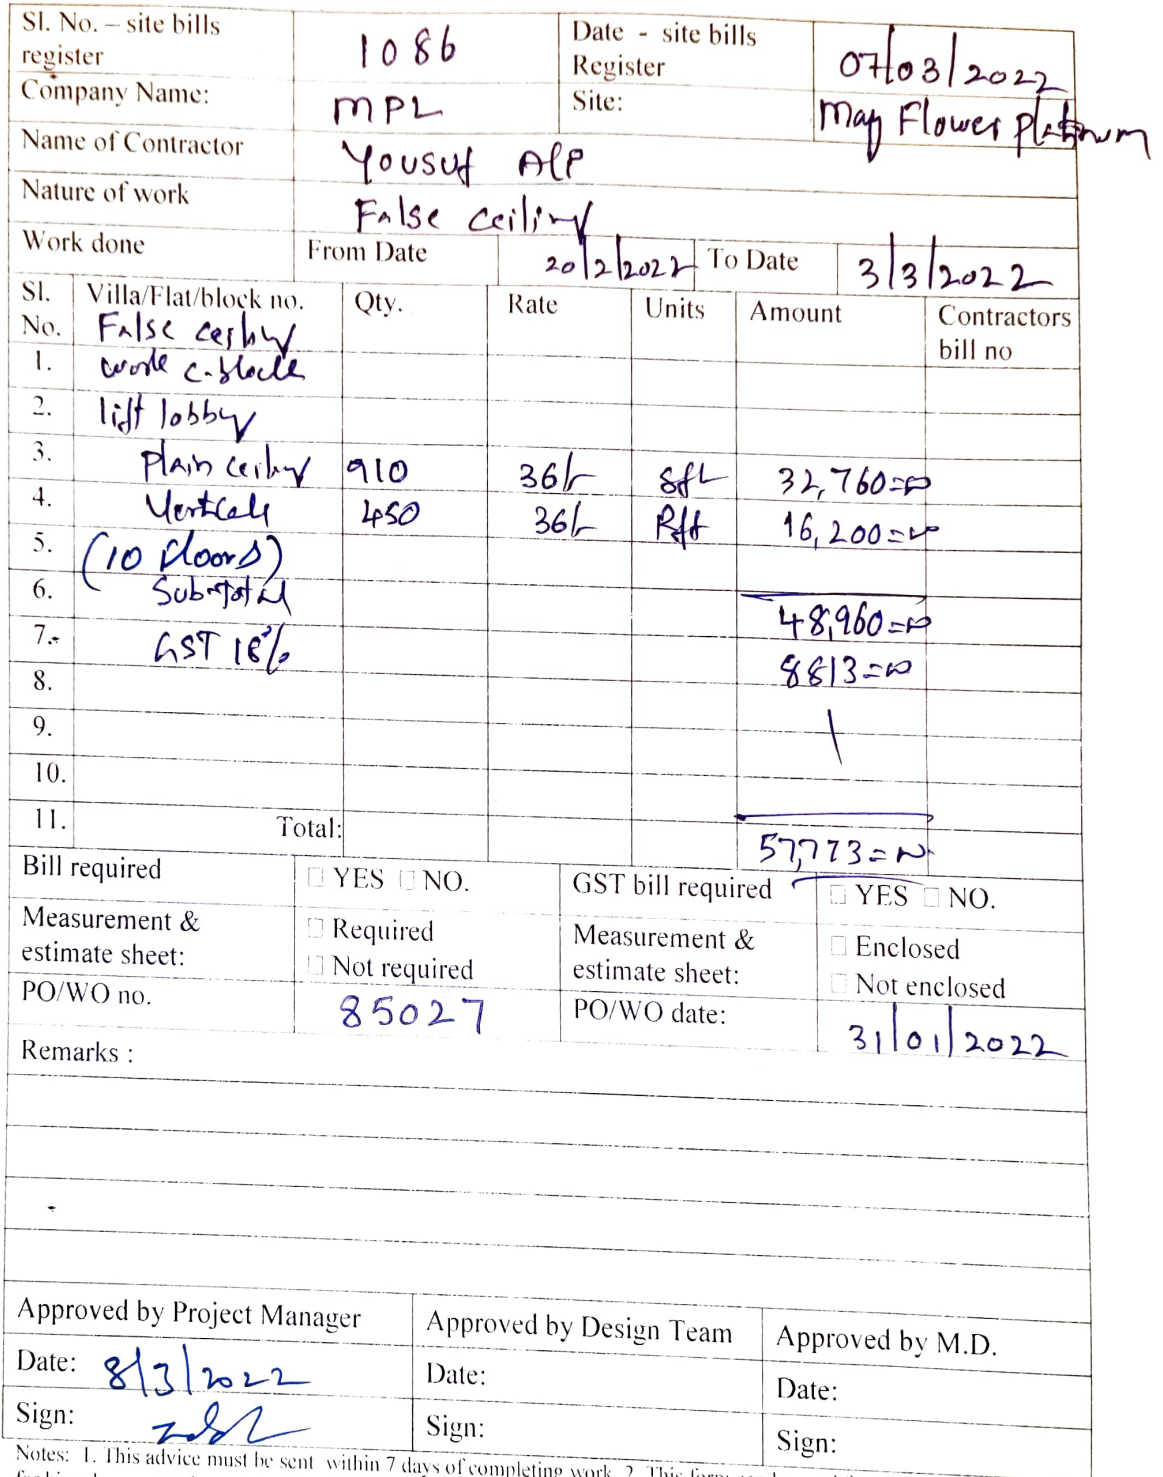 Sl. No. – site bills register 1086 Date - site bills Register 07/03/2022
Company Name: MPL Site: May Flower Platinum
Name of Contractor Yousuf Ali
Nature of work False ceiling
Work done From Date 20/2/2022 To Date 3/3/2022
Sl. No. Villa/Flat/block no. Qty. Rate Units Amount Contractors bill no
False ceiling
1. work c-block
2. lift lobby
3. Plain ceiling 910 36/- sft 32,760=00
4. Verticals 450 36/- Rft 16,200=00
5. (10 floors)
6. Sub-Total 48,960=00
7. GST 18% 8813=00
8.
9.
10.
11. Total: 57,773=00
Bill required YES NO. GST bill required YES NO.
Measurement & estimate sheet: Required Not required Measurement & estimate sheet: Enclosed Not enclosed
PO/WO no. 85027 PO/WO date: 31/01/2022
Remarks :
Approved by Project Manager Approved by Design Team Approved by M.D.
Date: 8/3/2022 Date: Date:
Sign: Sign: Sign:
Notes: 1. This advice must be sent within 7 days of completing work. 2. This form